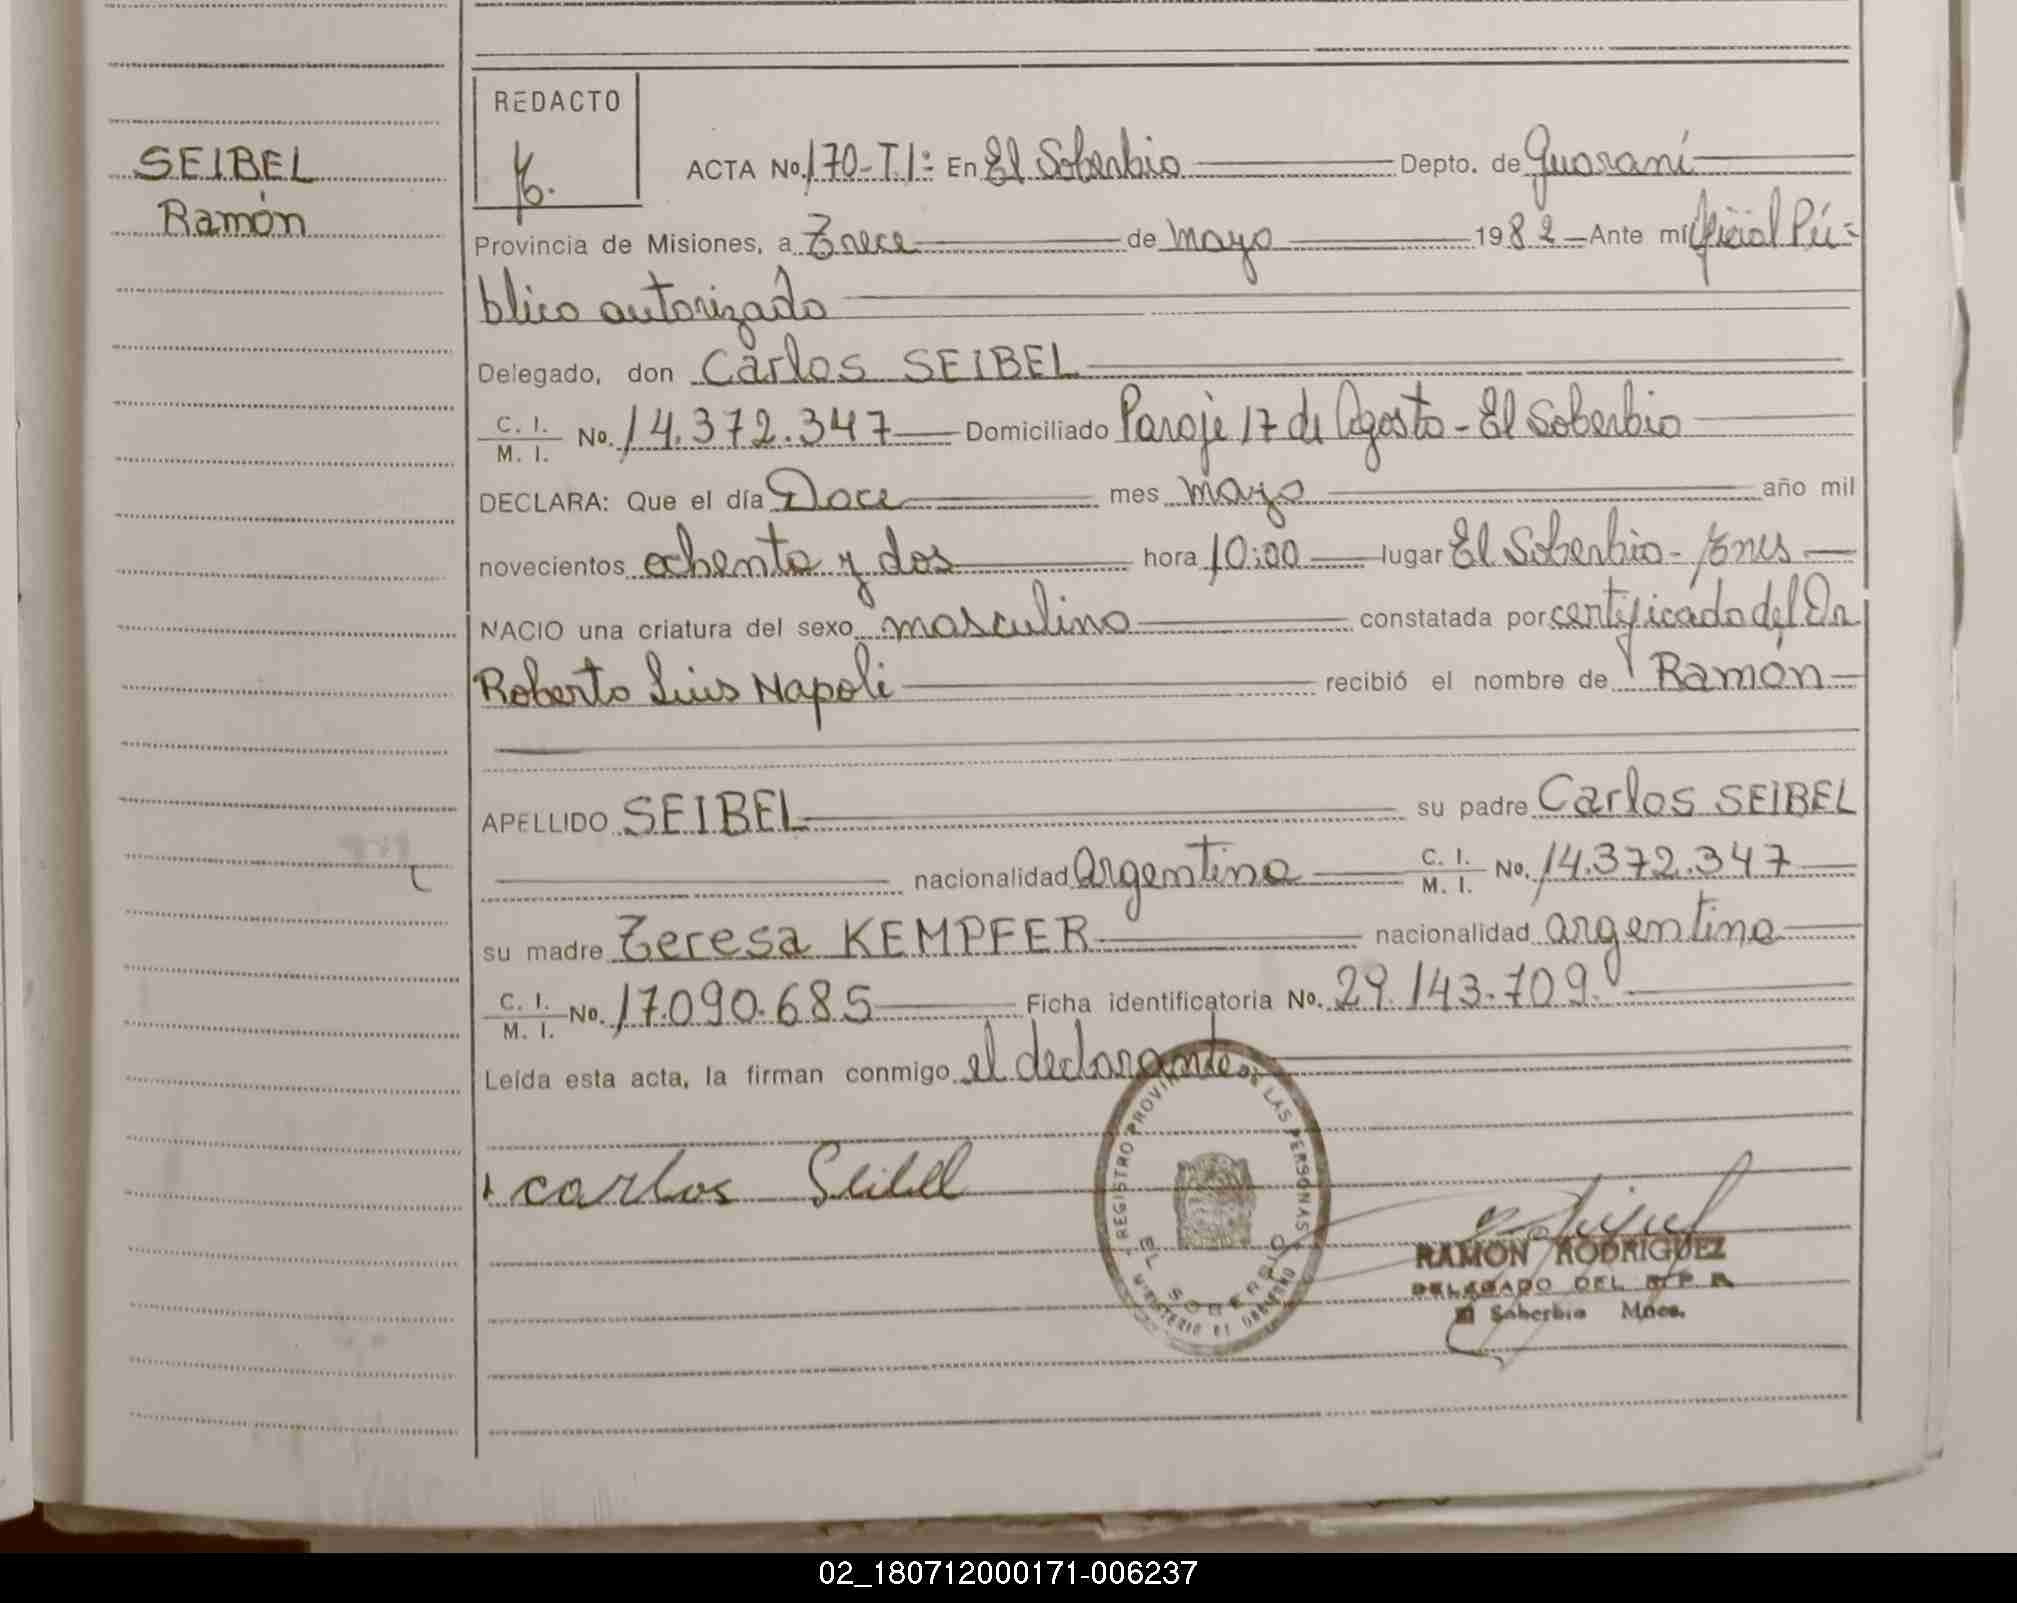 SEIBEL
Ramón
REDACTO
ACTA No. 170-T.1º En El Soberbio Depto. de Guaraní
Provincia de Misiones, a Trece de mayo 1982 Ante mí Oficial Pú=
blico autorizado
Delegado, don Carlos SEIBEL
C. I. / M. I. No. 14.372.347 Domiciliado Paraje 17 de Agosto - El Soberbio
DECLARA: Que el día Doce mes mayo año mil
novecientos ochenta y dos hora 10:00 lugar El Soberbio -
NACIO una criatura del sexo masculino constatada por certificado del Dr
Roberto Luis Napoli recibió el nombre de Ramón
APELLIDO SEIBEL su padre Carlos SEIBEL
nacionalidad Argentina C. I. / M. I. No. 14.372.347
su madre Teresa KEMPFER nacionalidad argentina
C. I. / M. I. No. 17.090.685 Ficha identificatoria No. 29.143.709.
Leída esta acta, la firman conmigo el declarante.
carlos Seibel
REGISTRO PROVIN DE LAS PERSONAS
EL SOBERBIO
MINISTERIO DE GOBIERNO
RAMON RODRIGUEZ
DELEGADO DEL R.P.P.
El Soberbio Mnes.
02_180712000171-006237